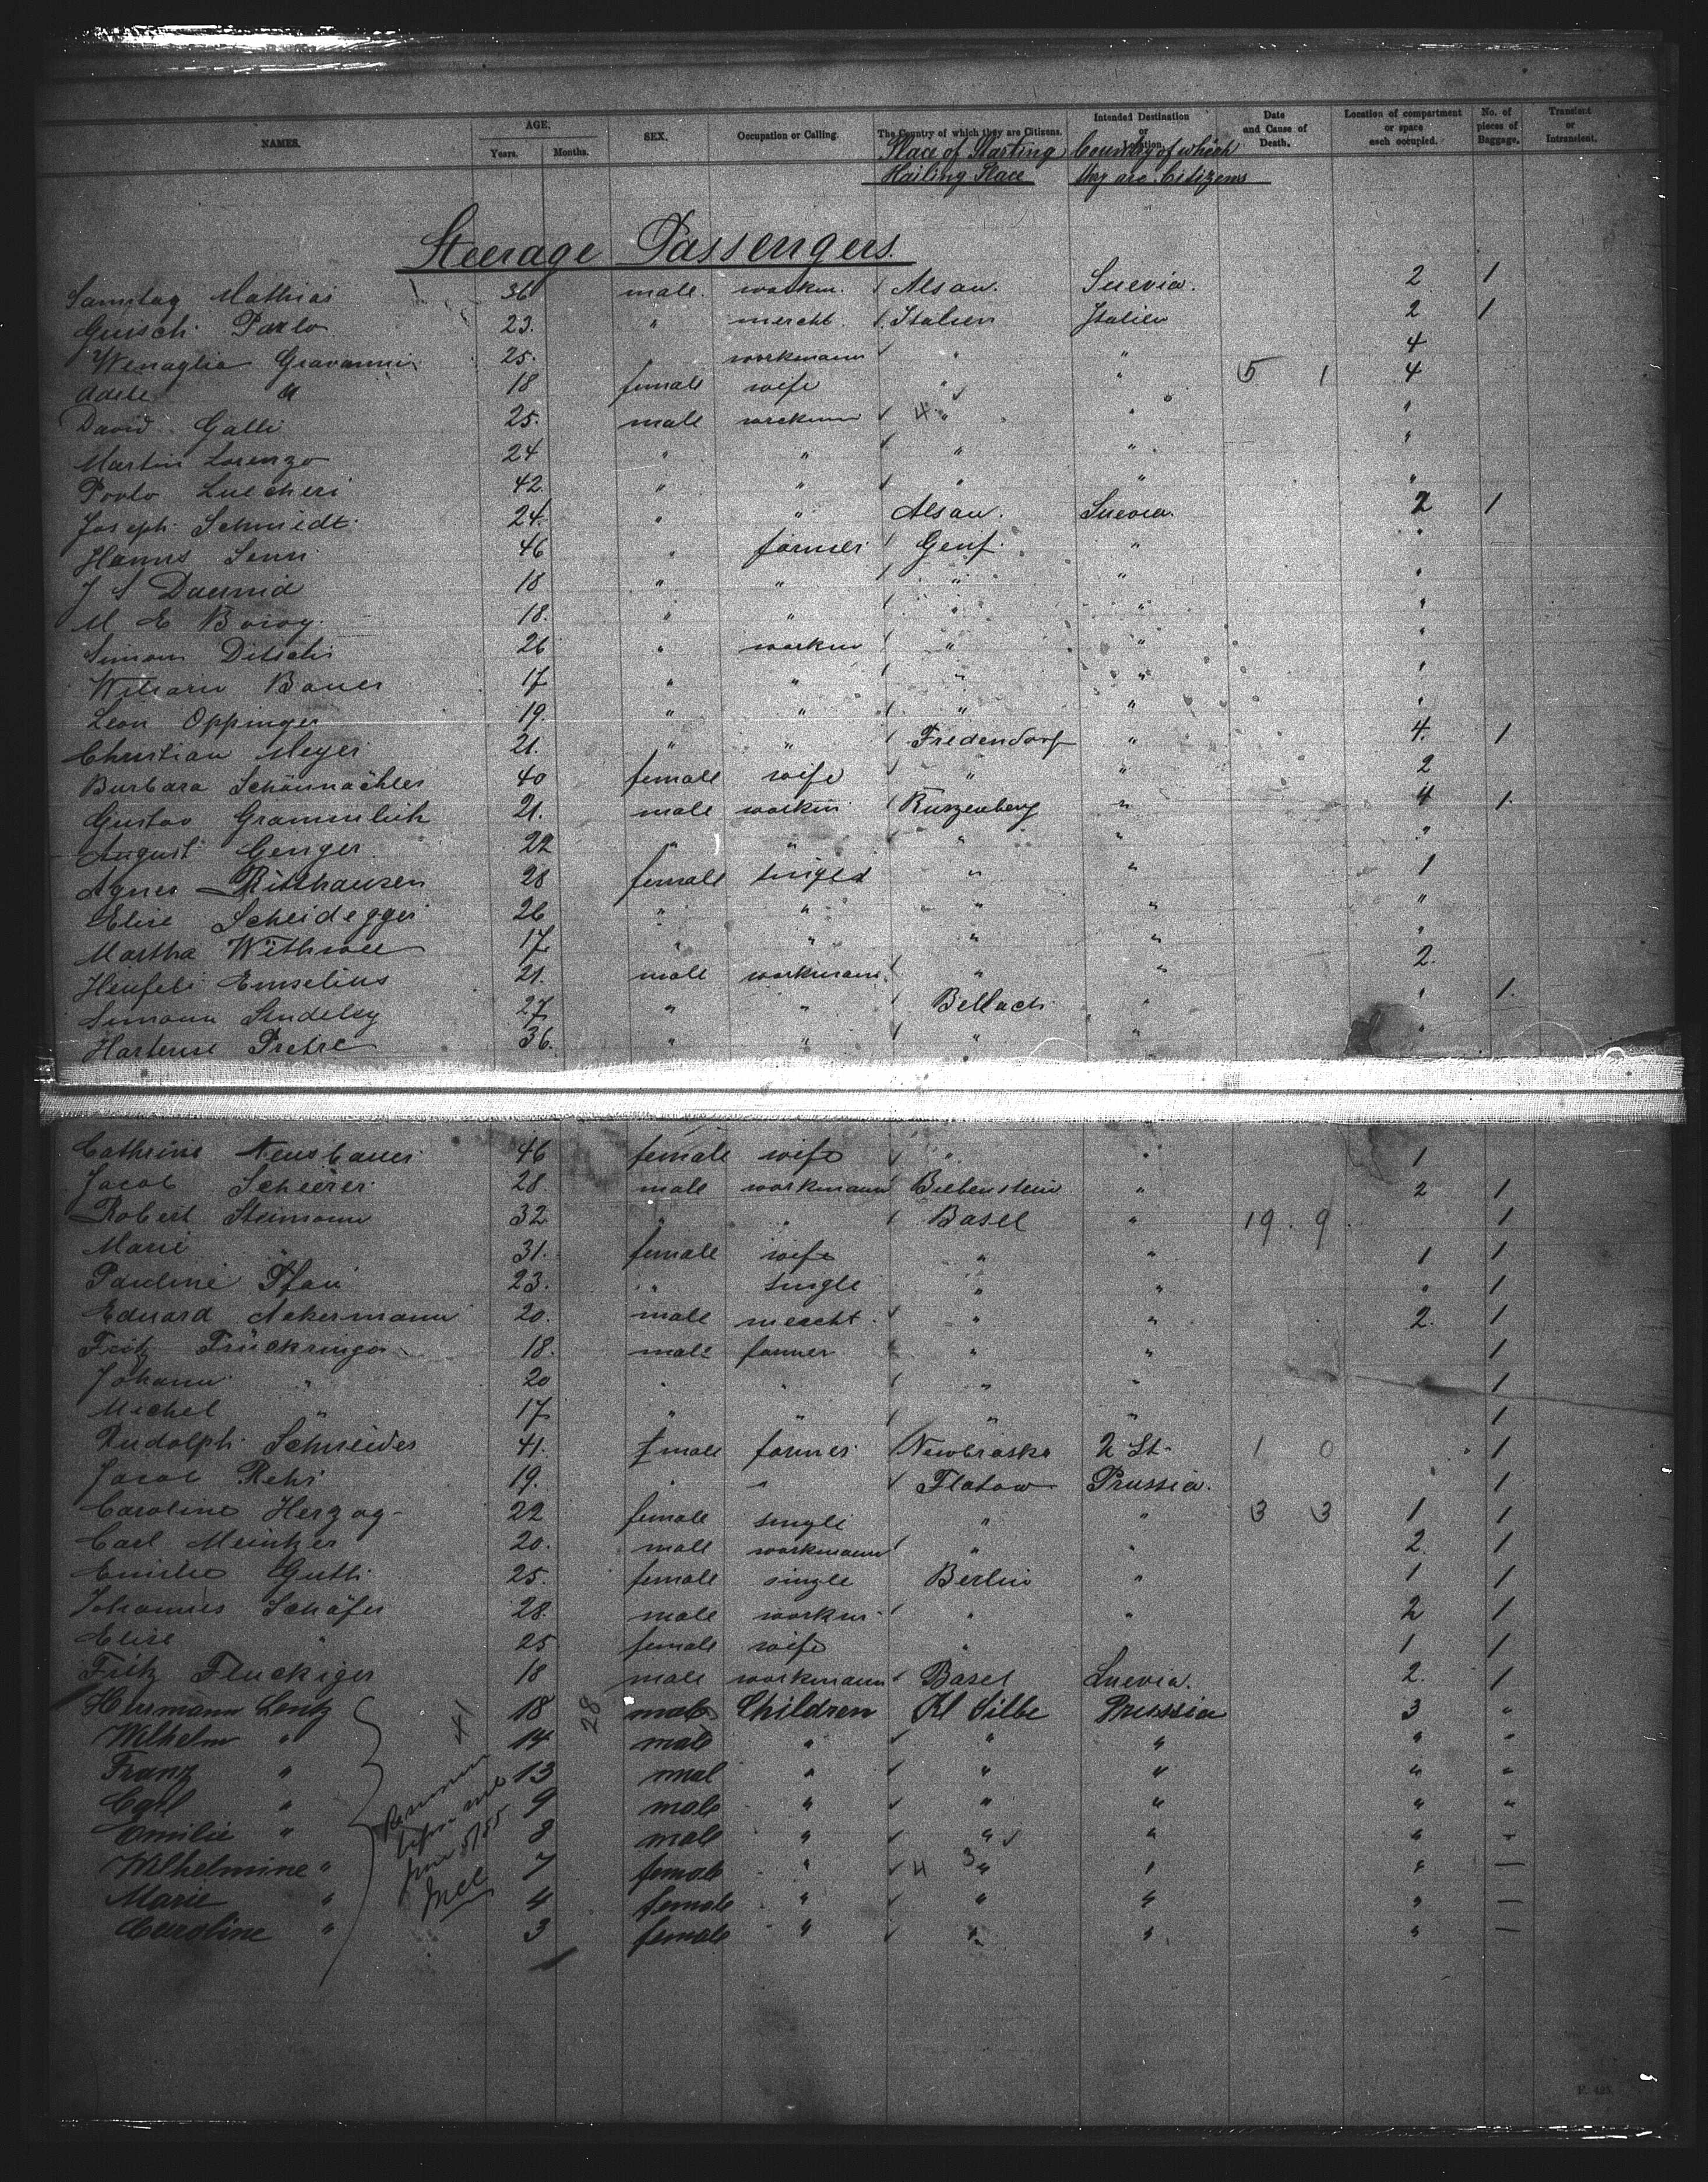 NAMES. AGE. Years. Months. SEX. Occupation or Calling. The Country of which they are Citizens. Intended Destination or Location. Date and Cause of Death. Location of compartment or space each occupied. No. of pieces of Baggage. Transient or Intransient.
Place of Starting Country of which
Hailing Place they are Citizens
Steerage Passengers.
Samstag Mathias 36 male. workm. Alsau. Suevia. 2 1
Guisch Parlo 23. " mercht. Italien Italien 2 1
Wenaglia Giavanni 25. workmann " " 4
Adele " 18 female wife " " 5 1 4
David Galli 25. male workmn 4 " " "
Martin Lorenzo 24 " " " " "
Povlo Lucheri 42. " " " " "
Joseph Schmidt 24. " " Alsau. Suevia. 2 1
Hanns Senn 46 " farmer Genf. " "
J S Daumid 18 " " " " "
M E Boioy. 18. " " " " "
Simon Ditschi 26 " workm " " "
Bauer 17 " " " " "
Leon Oppinger 19. " " " " "
Christian Meyer 21. " " Fredendorf " 4. 1
Burbara Schönnächler 40 female wife " " 2
Gustav Grammlich 21. male workm Kurzenberg " 4 1.
August Genger 22 " " " " "
Agnes Ritthausen 28 female singled " " 1
Elise Scheidegger 26 " " " " "
Martha 17 " " " " "
Emselius 21. male workmann " " 2.
Simonn Studeley 27 " " Bellach " " 1.
Hortense Pretre 36. " " " " "
Cathrine Neusbauer 46 female wife " " 1
Jacob Scheerer 28. male workmann Biebenstein " 2 1
Robert Steimann 32 " " Basel " 19. 9. 1
Marie " 31. female wife " " 1 1
Pauline Pfau 23. " single " " " 1
Eduard Ackermann 20. male mercht. " " 2. 1
Fritz Früekringer 18. male farmer " " 1
Johann " 20 " " " " 1
Michel " 17 " " " " 1
Rudolph Schneider 41. male farmer Newbraska U St. 1 0 " 1
Jacob Rehs 19. " " Flatow Prussia. 1
Caroline Herzog 22 female single " " 3 3 1 1
Carl Meintzer 20. male workmann " " 2. 1
Emilie Guth 25. female single Berlin " 1 1
Johannes Schäfer 28. male workm. " " 2 1
Elise " 25 female wife " " 1 1
Fritz Fluckiger 18 male workmann Basel Suevia. 2. 1
Herrmann Lentz 18 28 male Children Kl Silbe Prussia 3 "
Wilhelm " 41 14 male " " " " "
Franz " 13 mal " " " " "
Carl " 9 male " " " " "
Emilie " 8 male " " " " "
Wilhelmine " 7 female " 4 3 " " " —
Marie " 4 female " " " " —
Caroline " 3 female " " " " —
before me
June 5/85